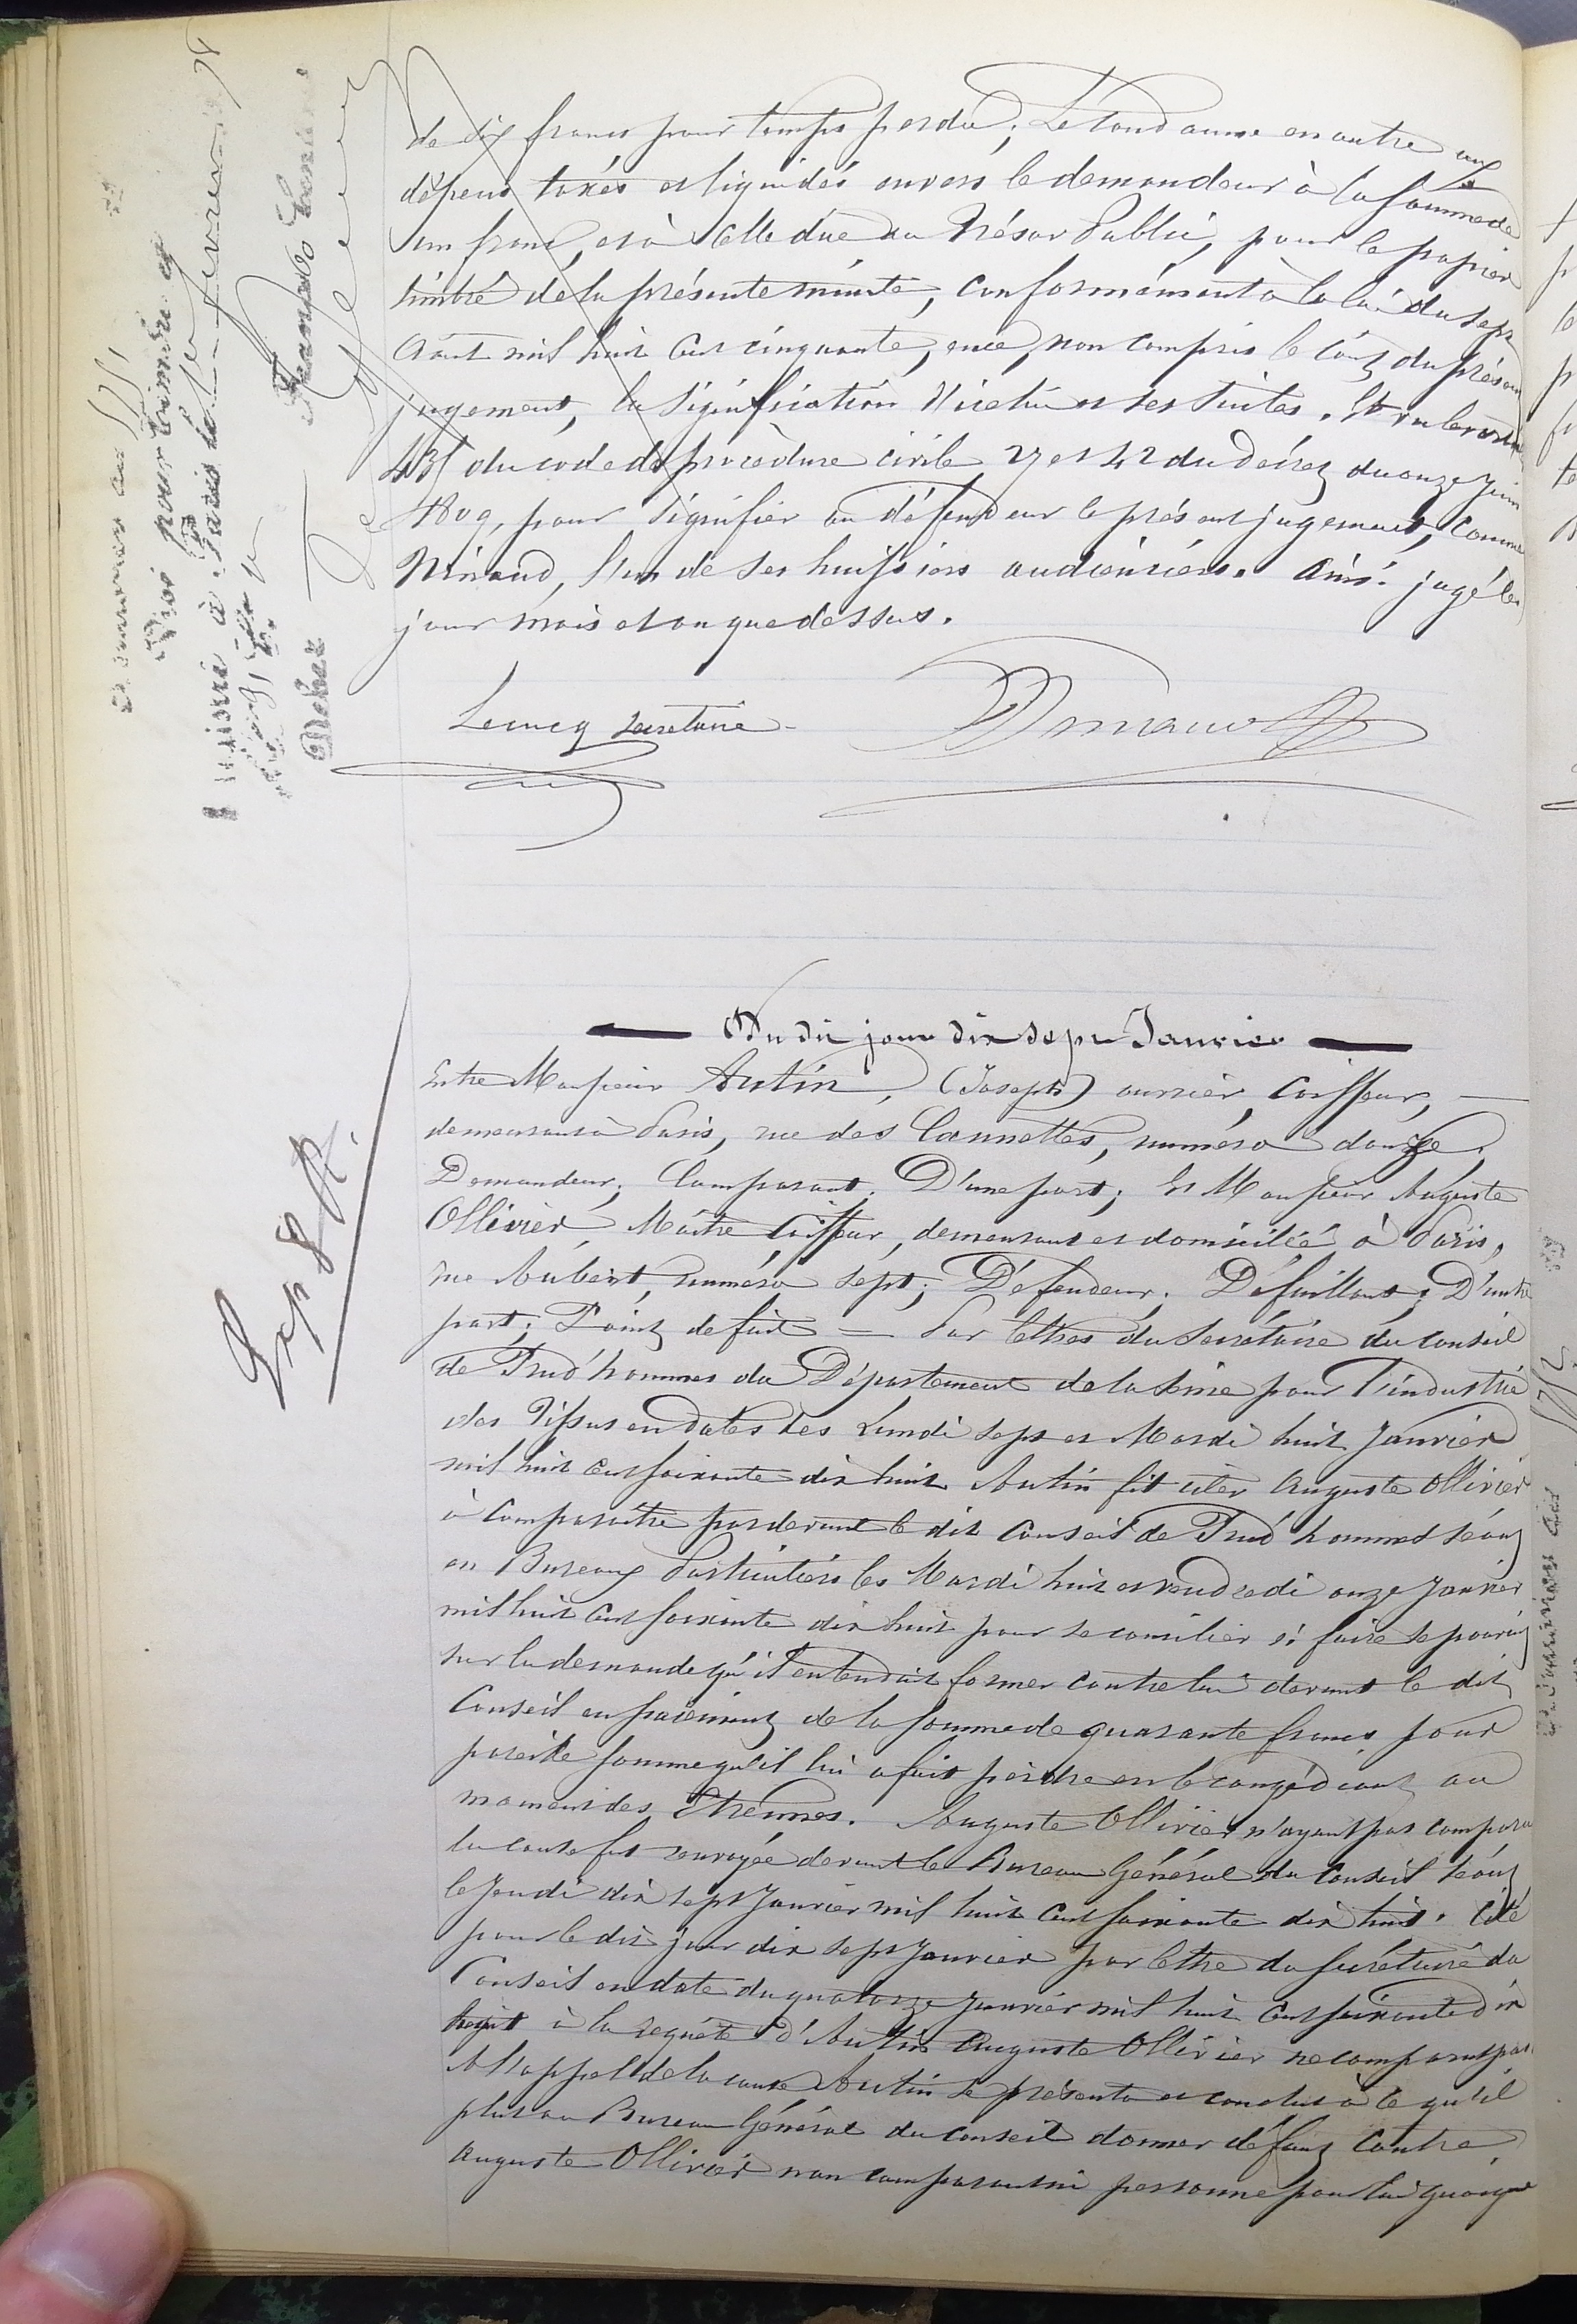 de dix francs pour temps perdu; Le condamne en outre aux
dépens taxés et liquidés envers le demandeur à la somme de
un franc, et à celle due au Trésor Public, pour le papier
timbré de la présente minute, conformément à la loi du sept
août mil huit cent cinquante, ence, non compris le coût du présent
jugement, la signification d'icelui et ses suites. Et vu les articles
435 du code de procédure civile 27 et 42 du décret du onze juin
1809, pour signifier au défendeur le présent jugement, comme
l'un de ses huissiers audienciers. Ainsi jugé les
jour mois et an que dessus.
Lecucq secrétaire
Du dit jour dix sept Janvier
Entre Monsieur Autin, (Joseph) ouvrier coiffeur,
demeurant à Paris, rue des Cannettes, numéro douze;
Demandeur; Comparant; D'une part; Et Monsieur Auguste
Ollivier, Maître Coiffeur, demeurant et domicilié à Paris,
rue Aubert, numéro sept; Défendeur; Défaillant; D'autre
part; Point de fait — Par lettres du secrétaire du conseil
de Prud'hommes du Département de la Seine pour l'industrie
des Tissus en dates des Lundi sept et Mardi huit Janvier
mil huit cent soixante dix huit Autin fit citer Auguste Ollivier
à comparaître par devant le dit conseil de Prud'hommes séant
en Bureaux Particuliers les Mardi huit et vendredi onze Janvier
mil huit cent soixante dix huit pour se concilier si faire se pouvait
sur la demande qu'il entendait former contre lui devant le dit
Conseil en paiement de la somme de quarante francs pour
pareille somme qu'il lui a fait perdre en le congédiant au
moment des Etrennes. Auguste Ollivier n'ayant pas comparu
la cause fut renvoyée devant le Bureau Général du Conseil séant
le Jeudi dix sept Janvier mil huit cent soixante dix huit. Cité
pour le dit jour dix sept Janvier par lettre du secrétaire du
Conseil en date du quatorze Janvier mil huit cent soixante dix
huit à la requête d'Autin Auguste Ollivier ne comparut pas
A l'appel de la cause Autin se présenta et conclut à ce qu'il
plut au Bureau Général du Conseil donner défaut contre
Auguste Ollivier non comparant ni personne pour lui quoique
Exp 8 R.